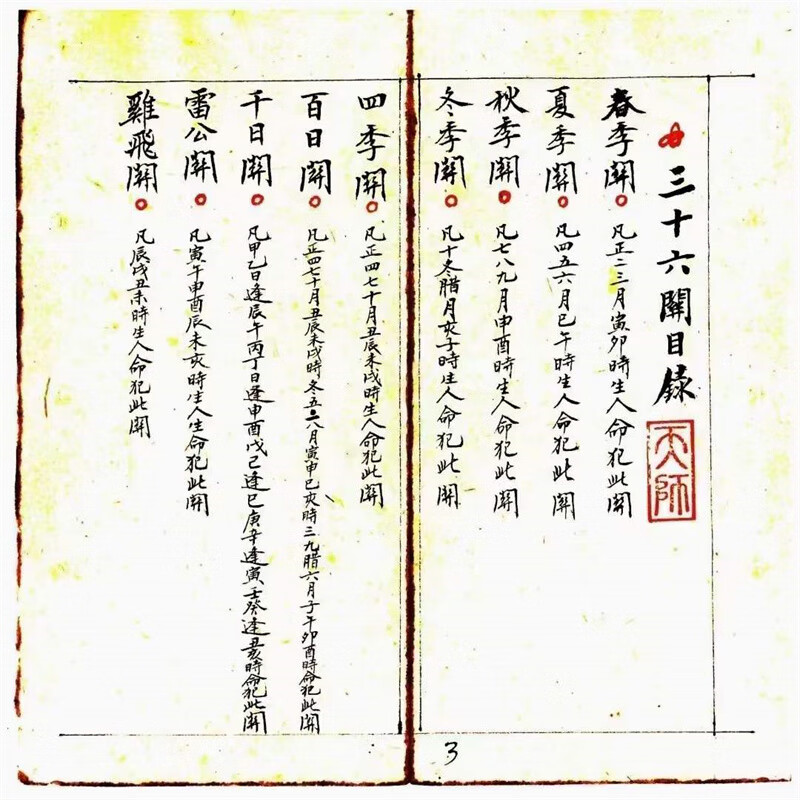 三十六關目錄
天師
春季關
凡正二三月寅卯時生人命犯此關
夏季關
凡四五六月巳午時生人命犯此關
秋季關
凡七八九月申酉時生人命犯此關
冬季關
凡十冬腊月亥子時生人命犯此關
四季關
凡正四七十月丑辰未戌時生人命犯此關
百日關
凡正四七十月丑辰未戌時冬五二八月寅申巳亥時三九腊六月子午卯酉時命犯此關
千日關
凡甲乙日逢辰午丙丁日逢申酉戊己逢巳庚辛逢寅壬癸逢丑亥時命犯此關
雷公關
凡寅午申酉辰未亥時生人生命犯此關
雞飛關
凡辰戌丑未時生人命犯此關
3